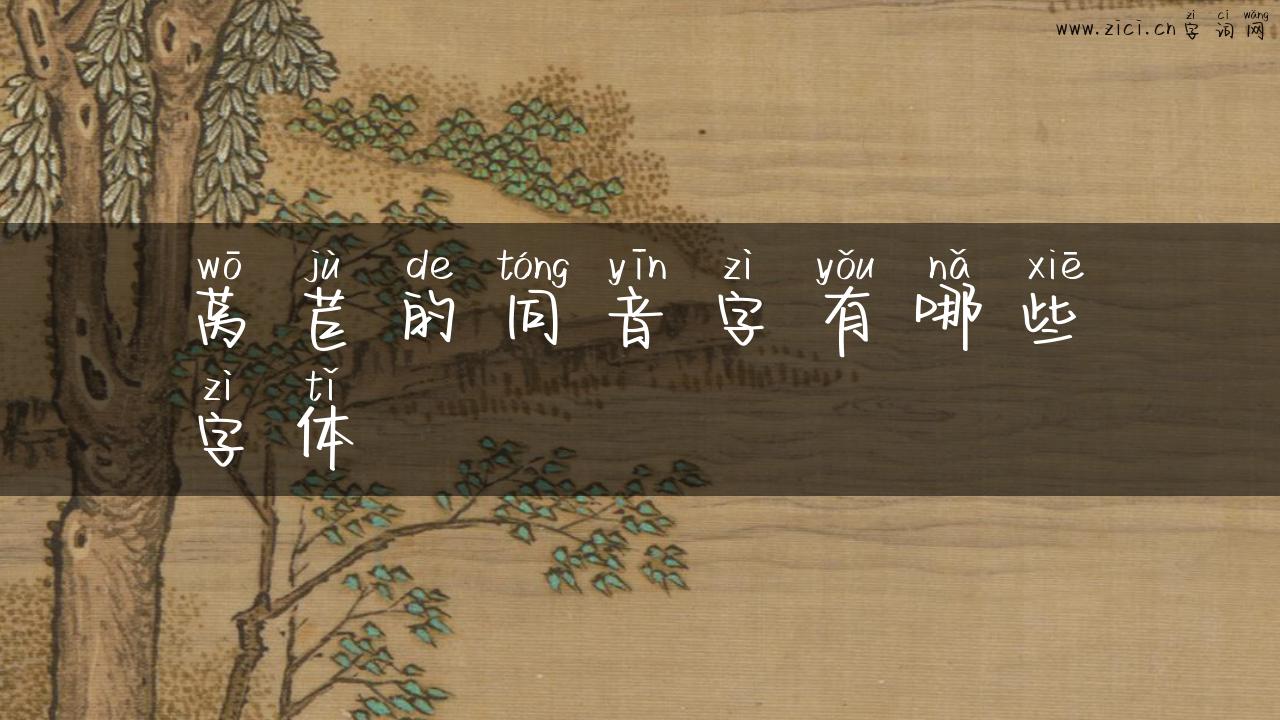 zì cí wǎng
www.zici.cn 字词网
wō jù de tóng yīn zì yǒu nǎ xiē
莴苣的同音字有哪些
zì tǐ
字体